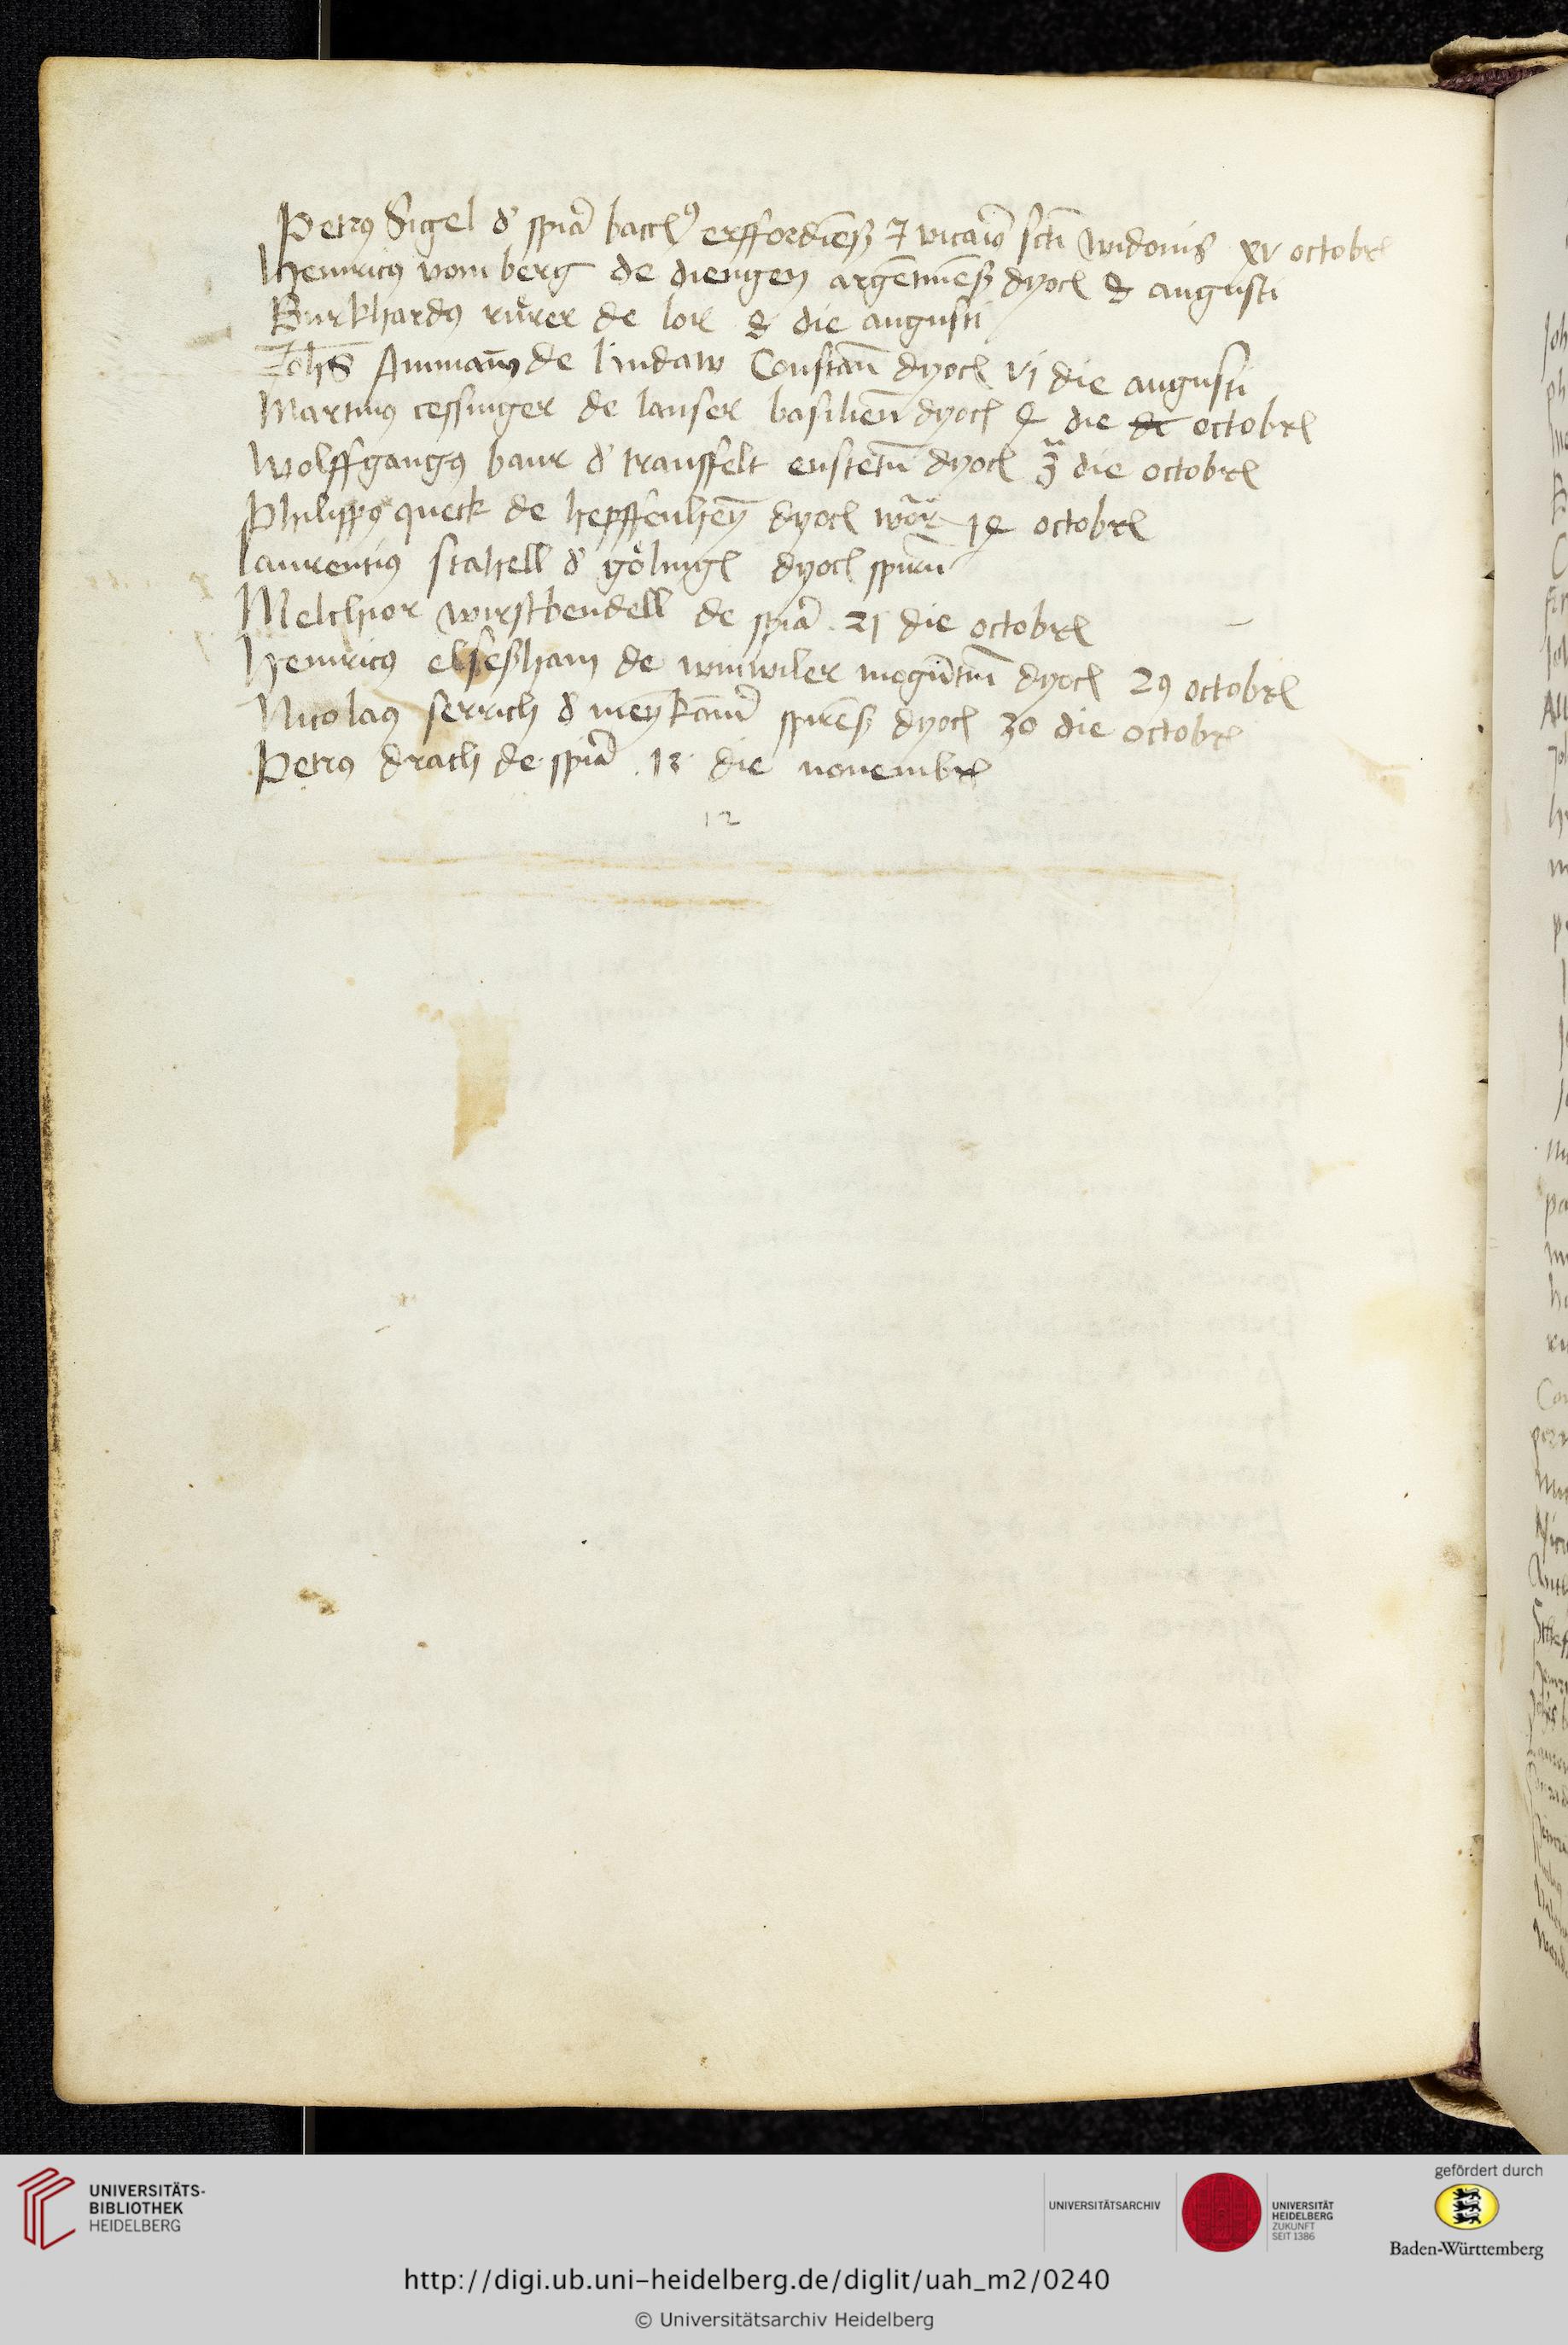 Petrꝰ Sigel d' spiã bacclꝰ erffordieñß ⁊ vicaiꝰ scti widonis xv octobrꝭ
Henricꝰ vom berg de diengen argẽtineñß dyocꝭ augusti
Burkhardꝰ rürer de lor die augusti
Johẽs Ammañ de lindaw Constañ dyocꝭ vj die augusti
Martinꝰ cessinger de lanser basilieñ dyocꝭ 4 die octobrꝭ
Wolffgangꝰ baur d' transfelt enstetñ dyocꝭ 3ª die octobrꝭ
Philippꝰ queck de heppfenheỹ dyocꝭ wor̃ 14 octobrꝭ
laurentius stahell d' gölingꝭ dyocꝭ spirñ
Melchior wirstbendell de spiã 21 die octobrꝭ
Henricꝰ elseßham de winwiler mogũtiñ dyocꝭ 29 octobrꝭ
Nicolaꝰ serrich d' meỹkam̃ spireñß dyocꝭ 30 die octobrꝭ
Petrꝰ drach de spiã 13 die novembrꝭ
12
UNIVERSITÄTS-
BIBLIOTHEK
HEIDELBERG
UNIVERSITÄTSARCHIV
UNIVERSITÄT
HEIDELBERG
ZUKUNFT
SEIT 1386
gefördert durch
Baden-Württemberg
http://digi.ub.uni-heidelberg.de/diglit/uah_m2/0240
© Universitätsarchiv Heidelberg